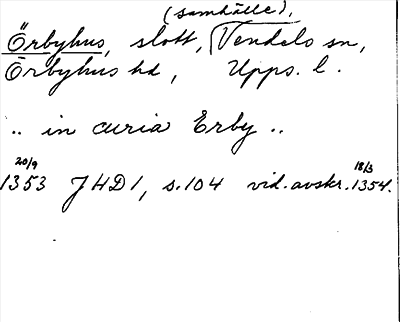 (samhälle),
Örbyhus, slott, Vendels sn,
Örbyhus hd, Upps. l.
.. in curia Erby ..
20/9 18/3
1353 JHD 1, s. 104 vid. avskr. 1354.